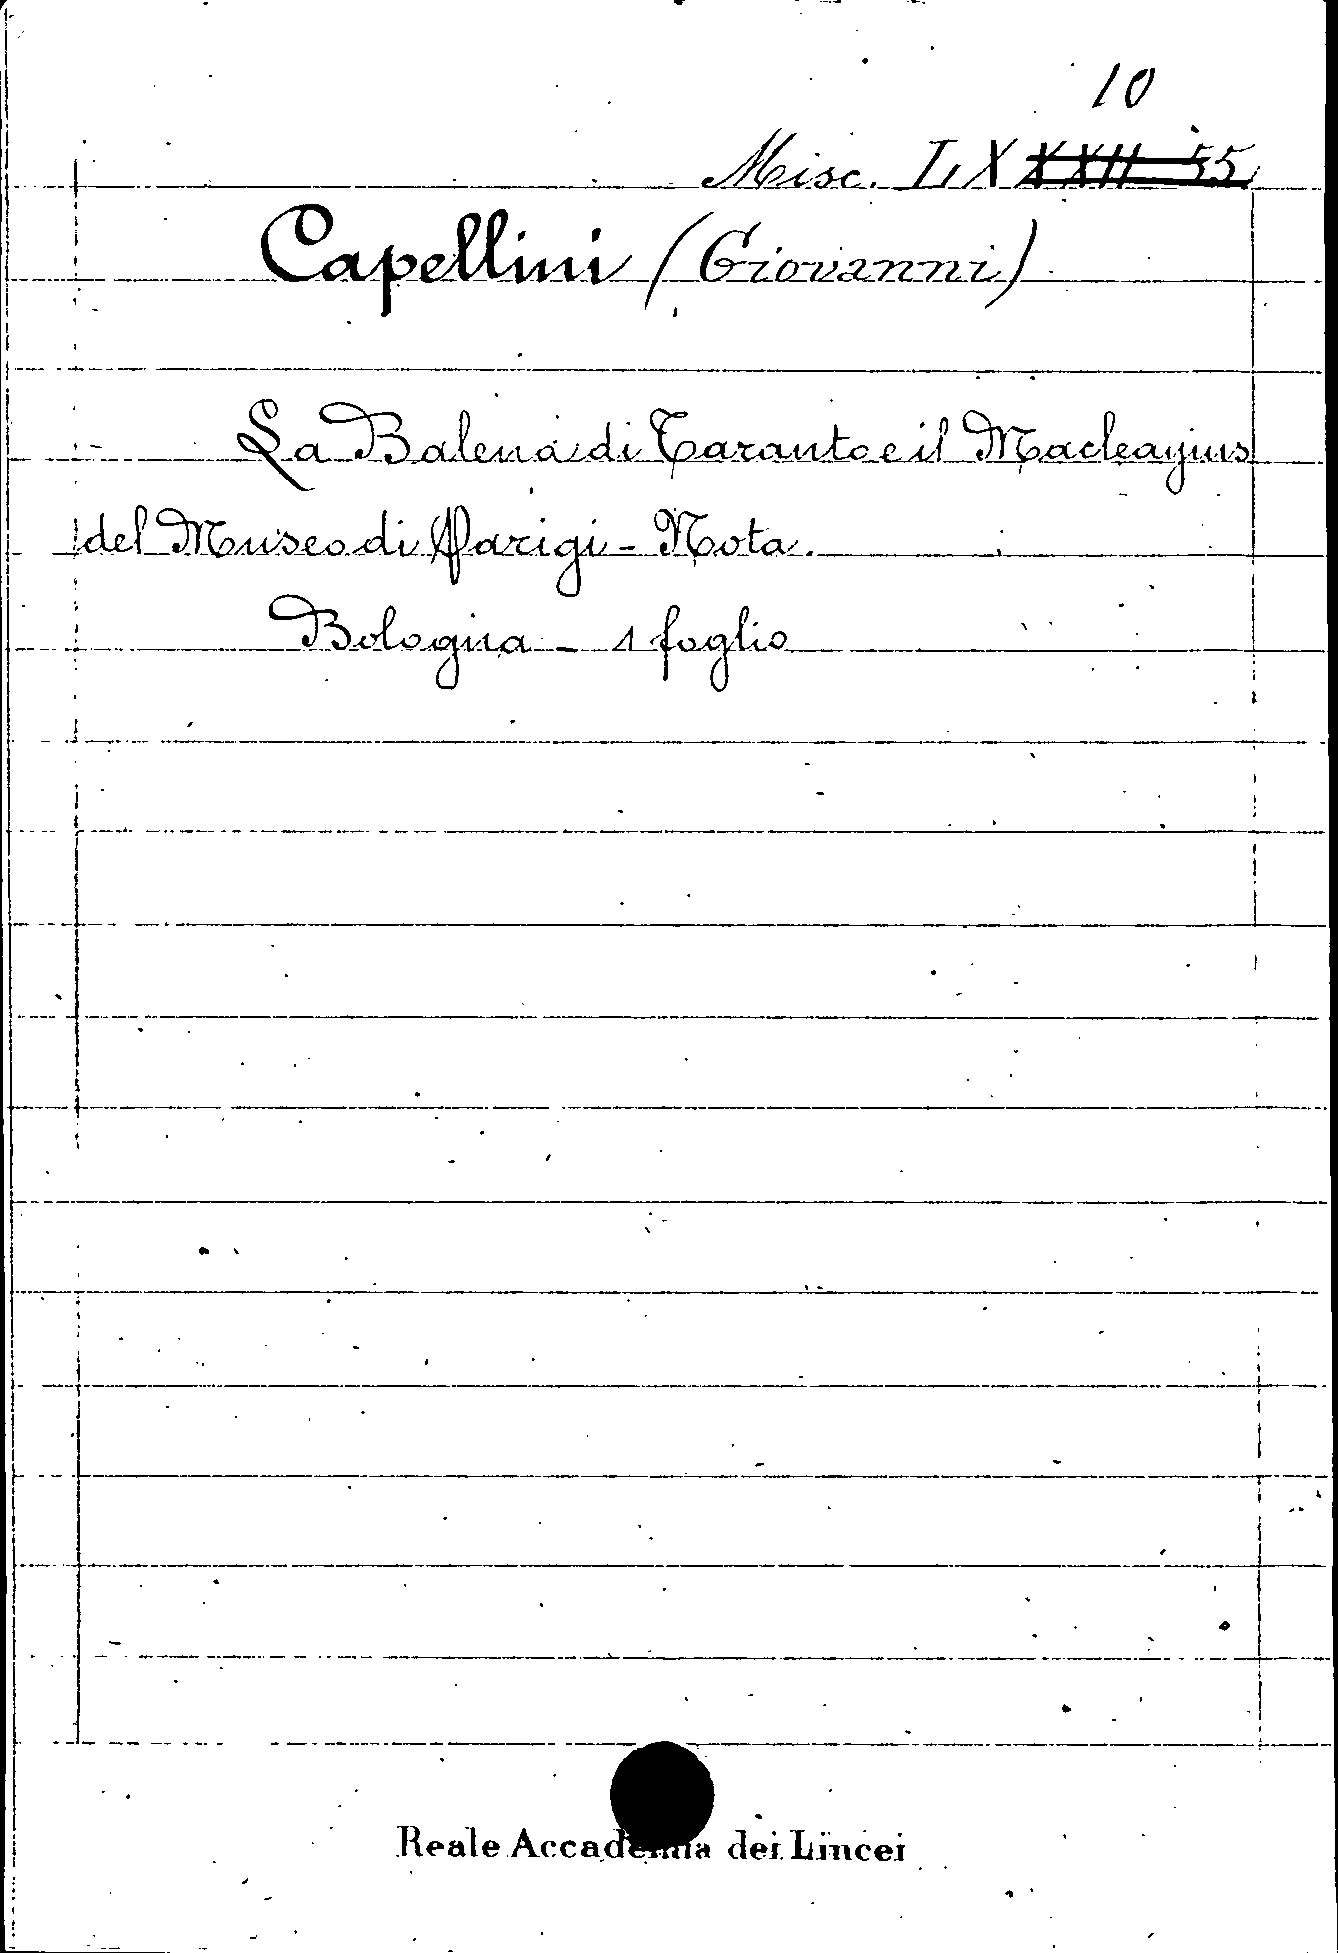 10
Misc. LX XXII 55
Capellini (Giovanni)
La Balena di Taranto e il Macleayius
del Museo di Parigi - Nota.
Bologna - 1 foglio
Reale Accademia dei Lincei